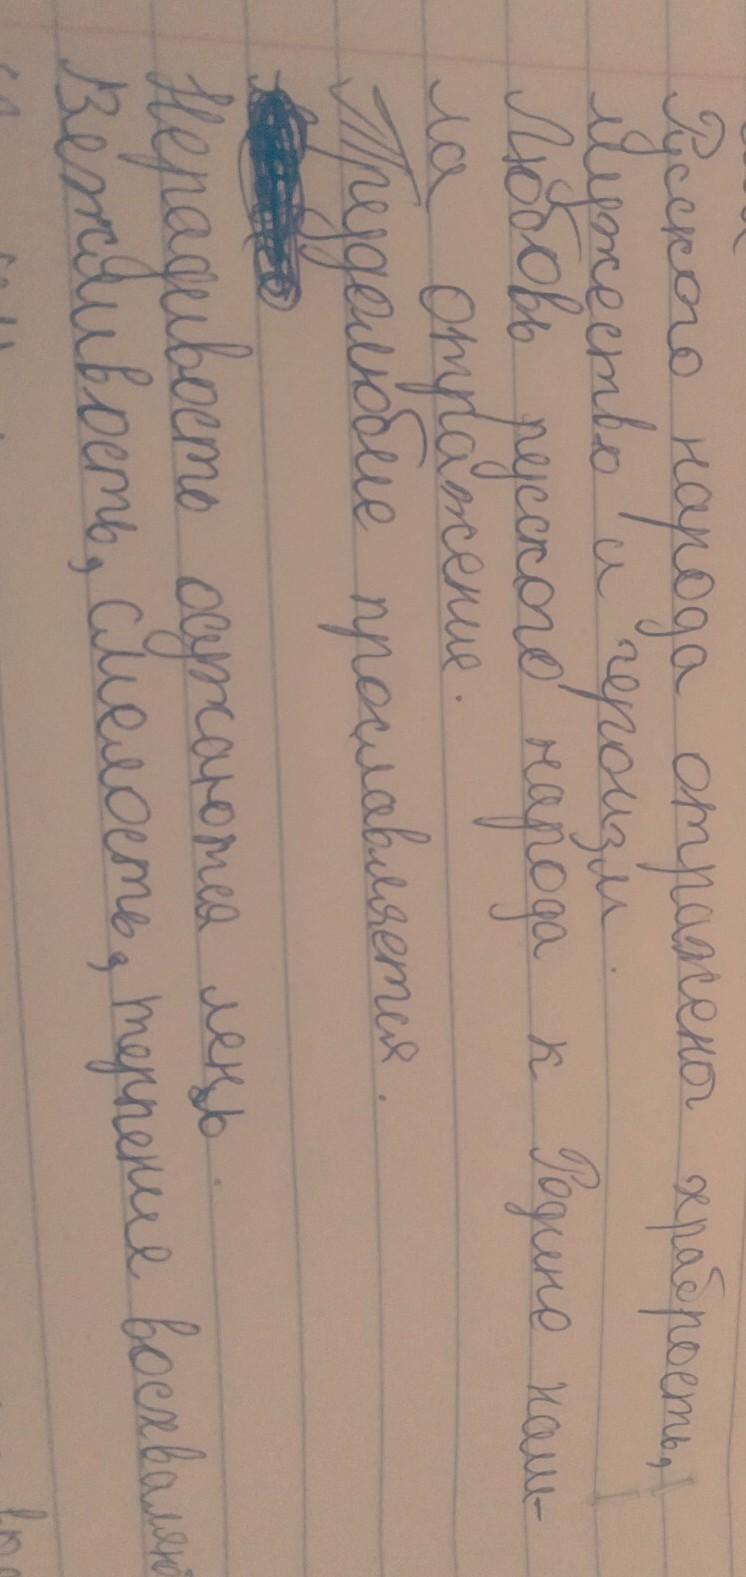 Русского народа отражены храбрость,
мужество и героизм.
Любовь русского народа к Родине наш-
ла отражение.
Трудолюбие прославляется.
Нерадивость осужаются лень.
Вежливость, смелость, терпение восхваляют